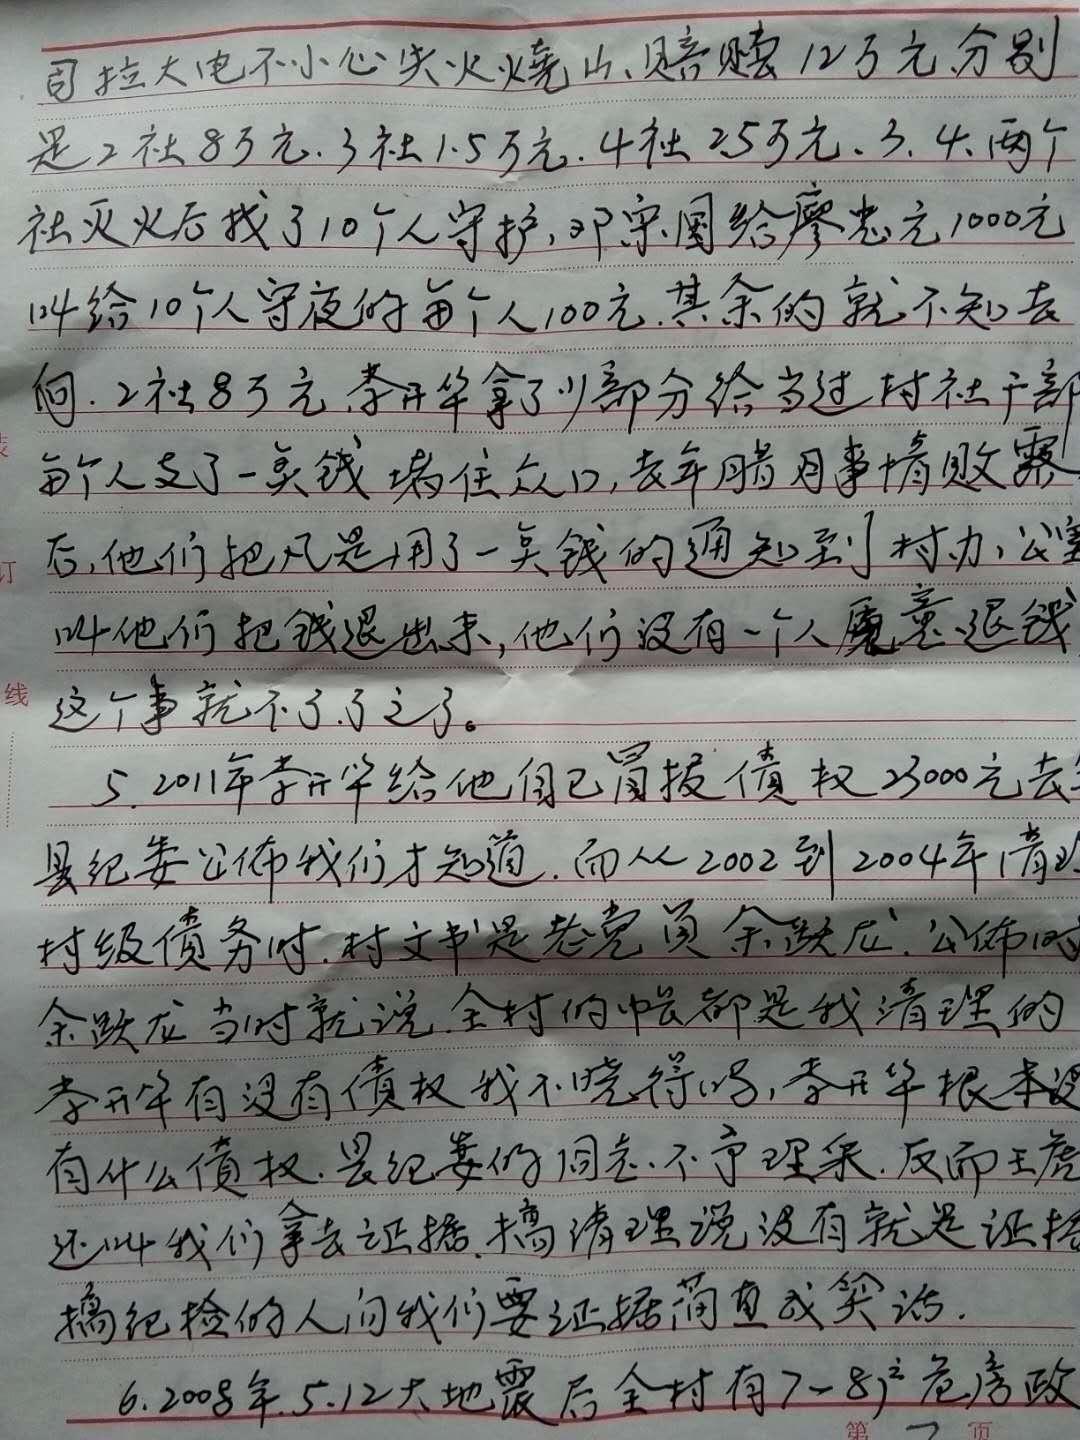 司拉大电不小心失火烧山、赔赎12万元.分别
是2社8万元.3社1.5万元.4社2.5万元、3.4.两个
社灭火后找了10个人守护,邓宗国给廖忠元1000元
叫给10个人守夜的每个人100元.其余的就不知去
向.2社8万元.李开华拿了少部分给当过村社干部
每个人支了一点钱堵住众口,去年腊月事情败露
后,他们把凡是用了一点钱的通知到村办公室
叫他们把钱退出来,他们没有一个人愿意退钱
这个事就不了了之了。
5.2011年李开华给他自己冒报债权23000元去年
县纪委公佈我们才知道.而从2002到2004年清理
村级债务时.村文书是老党员余跃龙.公佈时
余跃龙当时就说.全村的帐都是我清理的
李开华有没有债权我不晓得吗,李开华根本没
有什么债权.县纪委的同志.不予理采.反而王虎
还叫我们拿去证据.搞清理说没有就是证据
搞纪检的人问我们要证据简直成笑话.
6.2008年.5.12大地震后全村有7-8户危房政
第7页
装
订
线